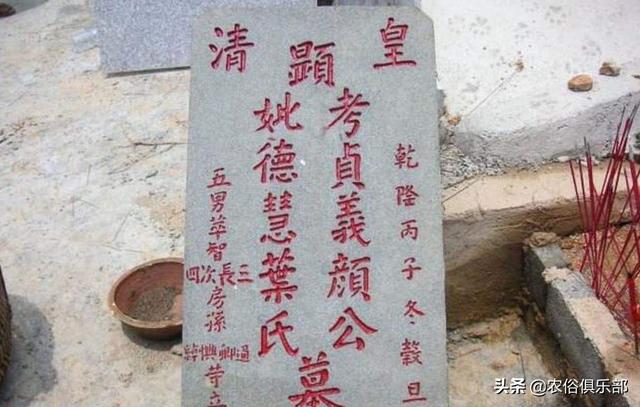 皇清
乾隆丙子冬·穀旦
顯
考貞義顏公
妣德慧葉氏
墓
五男萃智
三長次四
房孫
等立
头条 @农俗俱乐部